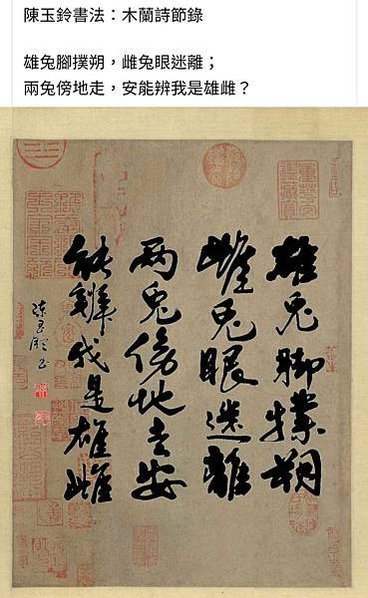 陳玉鈴書法：木蘭詩節錄
雄兔腳撲朔，雌兔眼迷離；
兩兔傍地走，安能辨我是雄雌？
雄兔脚撲朔
雌兔眼迷離
兩兔傍地走安
能辨我是雄雌